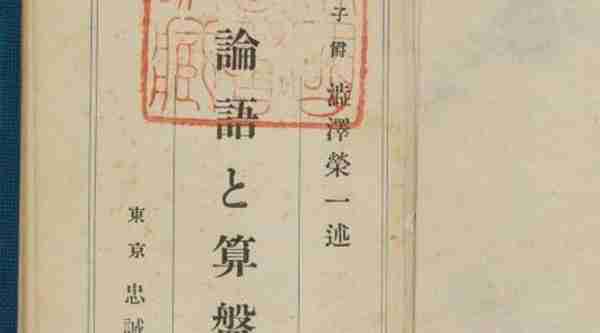 子爵 澁澤榮一述
論語と算盤
東京 忠誠